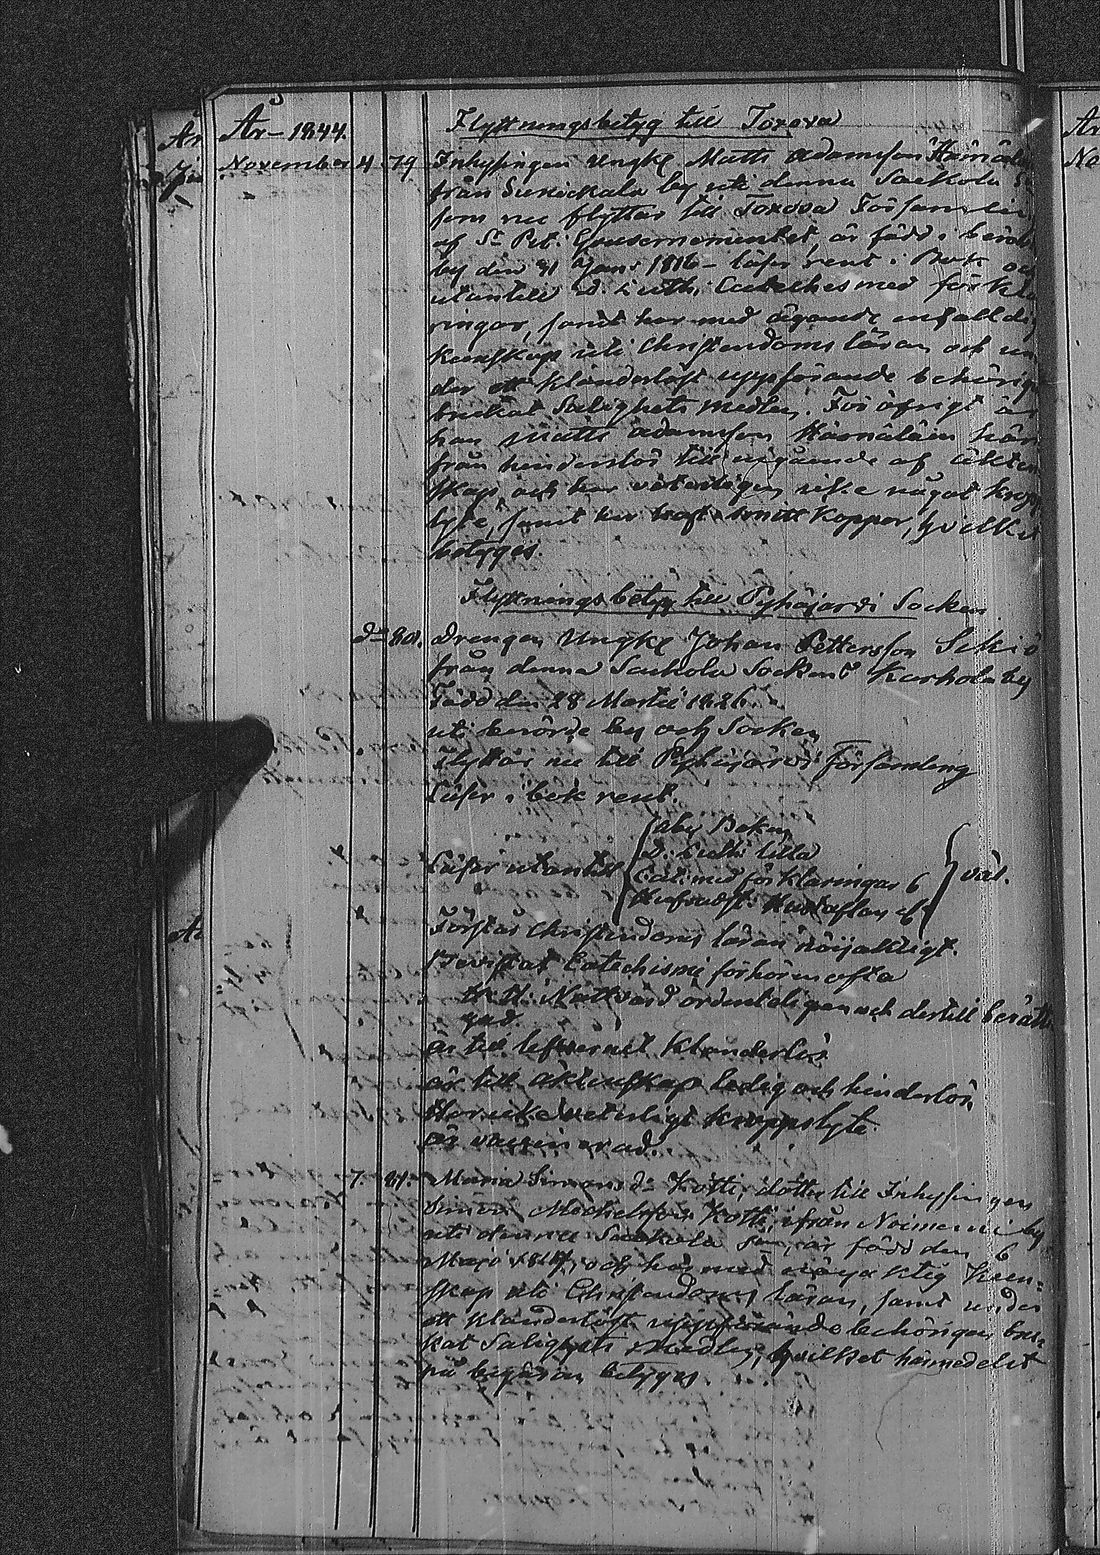 År 1844. Flyttningsbetyg till Toxova
November 4 79 Inhysingen Ynglg Matts Adamsson Hämäläin
från Sukickala by uti denna Sackola
som nu flyttar till Toxova Församlin
af St Pet. Gouvernementet, är född i berörde
by den 31 Jan: 1816 – läser rent i Bok och
utantill D: Luth: Cateches med förkla
ringar, samt har med ägande enfalldig
kunskap uti Christendoms läran och un
der ett klanderlöst uppförande behörigen
brukat Salighets medlen. För öfrigt är
han Matts Adamsson Hämäläin här
från hinderslös till ingående af äkten
skap, och har veterligen icke något kropps
lyte, samt har haft Koppor, hvilket
betyges.
Flyttningsbetyg till Pyhäjärvi Socken
Do 80. Drengen Ynglg Johan Pettersson
från denna Sackola Socken &
Född den 28 Martii 1826.
uti berörde by och Socken
Flyttar nu till Pyhäjärvi Församling
Läser i bok rent.
Läser utantill { aby Boken
D: Luth: lilla
Cat: med förklaringar 6
Hustaflan } väl.
Förstår Christendoms läran nöjaktligt.
Bevistat Catechismi förhören ofta
H. H. Nattvard ordenteligen och dertill berätti
gad.
är till lefvernet klanderlös
är till äktenskap ledig och hinderlös
Har icke veterligt kroppslyte.
är vaccinerad.
7. 81. Maria Simonsdr Kotti, dotter till Inhysingen
Simon Michelsson Kotti, ifrån by
uti denna Sackola Sn, är född den 6
Maji och har med nöjaktlig Kun-
skap uti Christendoms läran, samt under
ett klanderlöst uppförande behörigen bru-
kat Salighets medlen, hvilket härmedelst
på begäran betyges.